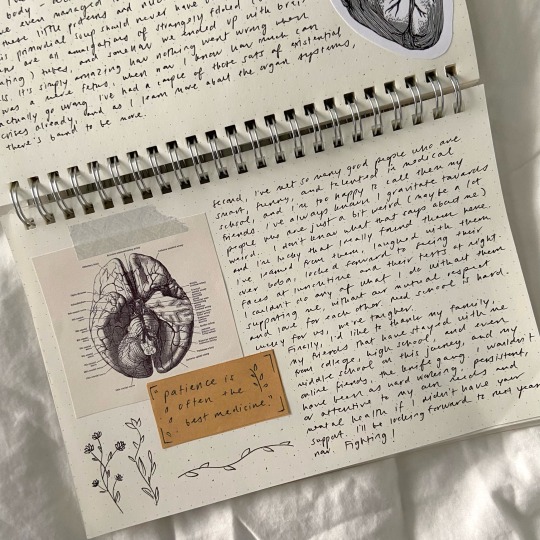 we even managed
these little patterns and
is primordial soup should never have
are as amalgations of strangely folded
ating) tubes, and somehow we ended up with brain
lls. It's simply amazing how nothing went wrong when
was a mere fetus, when now I know how much can
actually go wrong. I've had a couple of those sorts of existential
crises already, and as I learn more about the organ systems,
there's bound to be more.
Second, I've met so many good people who are
smart, funny, and talented in medical
school, and I'm too happy to call them my
friends. I've always known I gravitate towards
people who are just a bit weird (maybe a lot
weird. I don't know what that says about me)
and I'm lucky that I actually found them here.
I've learned from them, laughed with them
over boba, looked forward to seeing their
faces at lunchtime and their texts at night.
I couldn't do any of what I do without them
supporting me, without our mutual respect
and love for each other. Med school is hard.
Lucky for us, we're tougher.
Finally, I'd like to thank my family,
my friends that have stayed with me
from college, high school, and even
middle school on this journey, and my
online friends, the knife gang. I wouldn't
have been as hard working, persistent,
or attentive to my own needs and
mental health if I didn't have your
support. I'll be looking forward to next year
now. Fighting!
"patience is
often the
best medicine."